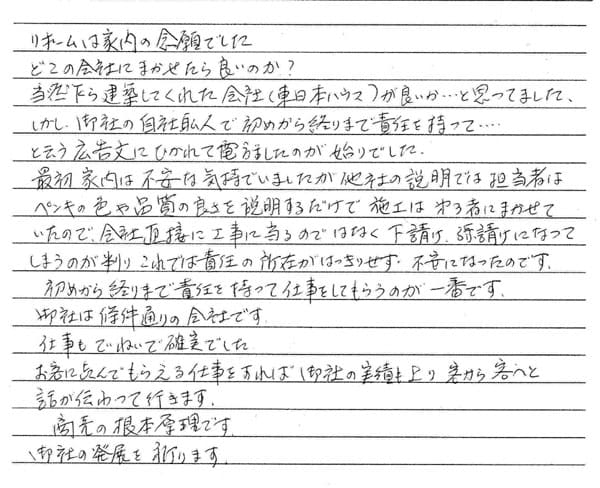 リホームは家内の念願でした
どこの会社にまかせたら良いのか?
当然下ら建築してくれた会社(東日本ハウス)が良いか…と思ってました、
しかし、御社の自社職人で初めから終りまで責任を持って‥‥
と云う広告文にひかれて電話しましたのが始りでした.
最初 家内は不安な気持でいましたが他社の説明では担当者は
ペンキの色や品質の良さを説明するだけで施工は 業者にまかせて
いたので、会社直接に工事に当るのではなく 下請け、孫請けになって
しまうのが判り これでは責任の所在がはっきりせず、不安になったのです.
初めから終りまで責任を持って仕事をしてもらうのが一番です.
御社は条件通りの会社です.
仕事も でいねいで確実でした
お客に喜んでもらえる仕事をすれば 御社の実績も上り 客から客へと
話が伝わって行きます.
商売の根本原理です.
御社の発展を祈ります.